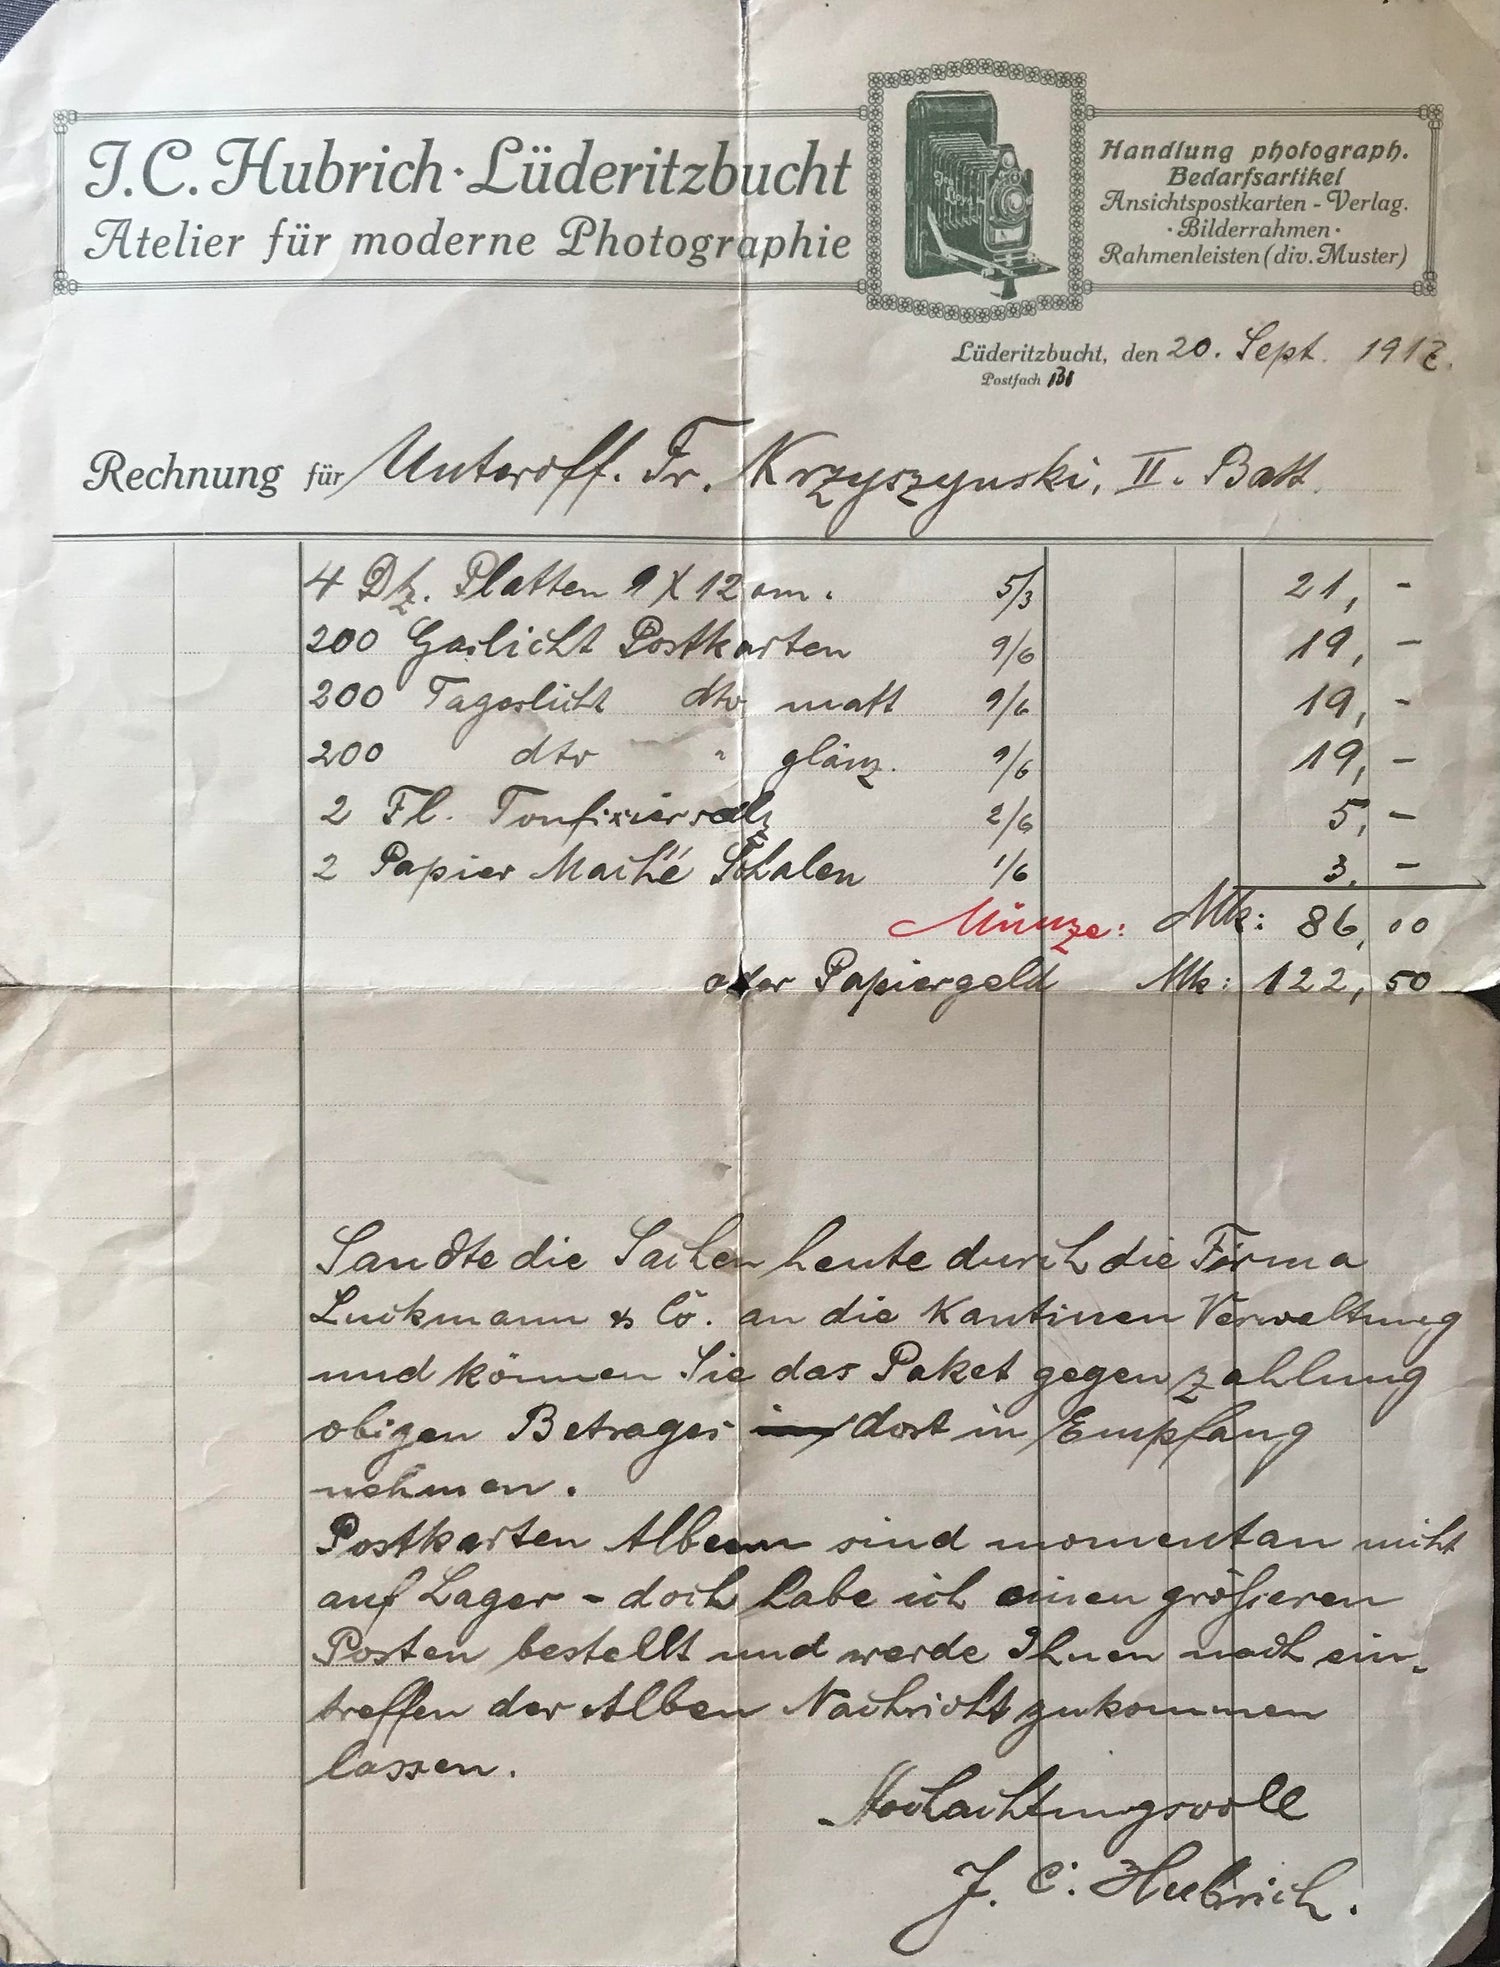 J. C. Hubrich · Lüderitzbucht
Atelier für moderne Photographie
Handlung photograph.
Bedarfsartikel
Ansichtspostkarten - Verlag.
· Bilderrahmen ·
Rahmenleisten (div. Muster)
Lüderitzbucht, den 20. Sept. 191
Postfach 131
Rechnung für Unteroff. Fr. Krzyszynski, II. Batt.
4 Dtz. Platten 9 X 12 cm. 5/3 21, -
200 Gaslicht Postkarten 9/6 19, -
200 Tageslicht dto matt 9/6 19, -
200 dto " glänz. 9/6 19, -
2 Fl. Tonfixiersalz 2/6 5, -
2 Papier Maché Schalen 1/6 3. -
Münze: Mk: 86,00
oder Papiergeld Mk: 122,50
Sandte die Sachen heute durch die Firma
Luckmann & Co. an die Kantinen Verwaltung
und können Sie das Paket gegen zahlung
obigen Betrages dort in Empfang
nehmen.
Postkarten Alben sind momentan nicht
auf Lager - doch habe ich einen größeren
Posten bestellt und werde Ihnen nach ein-
treffen der Alben Nachricht zukommen
lassen.
Hochachtungsvoll
J. C. Hubrich.